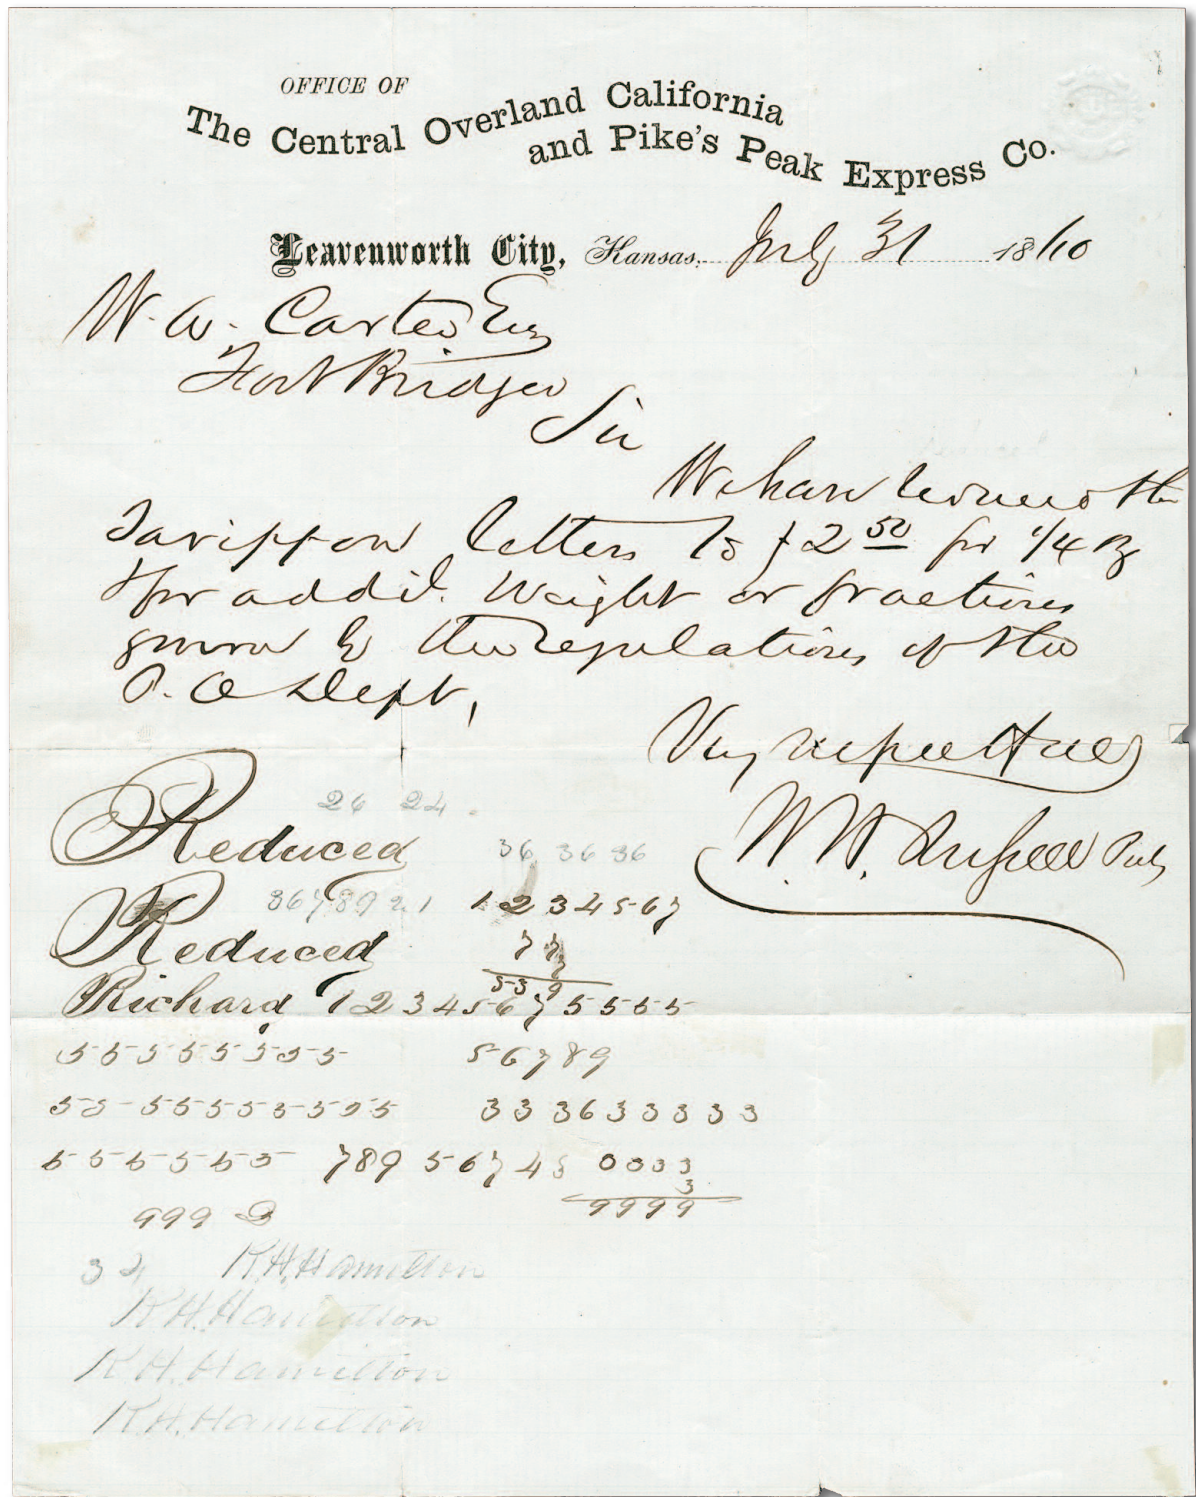 OFFICE OF
The Central Overland California
and Pike's Peak Express Co.
Leavenworth City, Kansas, July 31 1860
W. A. Carter Esq
Fort Bridger
Sir
We have reduced the
Tariff on letters to $2 50 for 1/4 oz
& for addil. Weight or fractions
govern by the regulations of the
P. O Dept,
Very respectfully
W. H. Russell Prest
26 24
Reduced
36 36 36
3678921 1234567
Reduced
77
7
Richard 1234567 5555
5559
55555555 56789
555555555 333633333
5555555 789 567 45 0333
3
999 9999
34 R.H. Hamilton
R.H. Hamilton
R.H. Hamilton
R.H. Hamilton